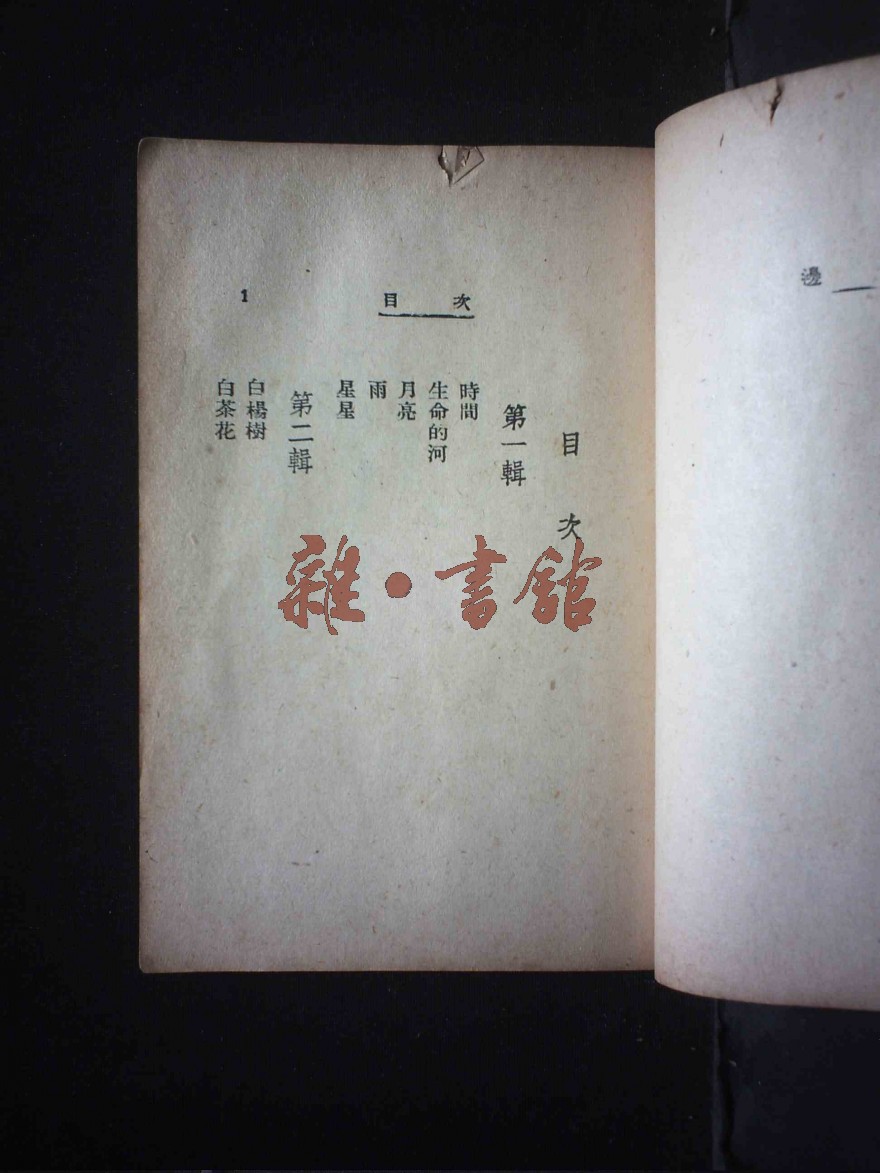 邊
目次
1
目次
第一輯
時間
生命的河
月亮
雨
星星
第二輯
白楊樹
白茶花
雜•書館